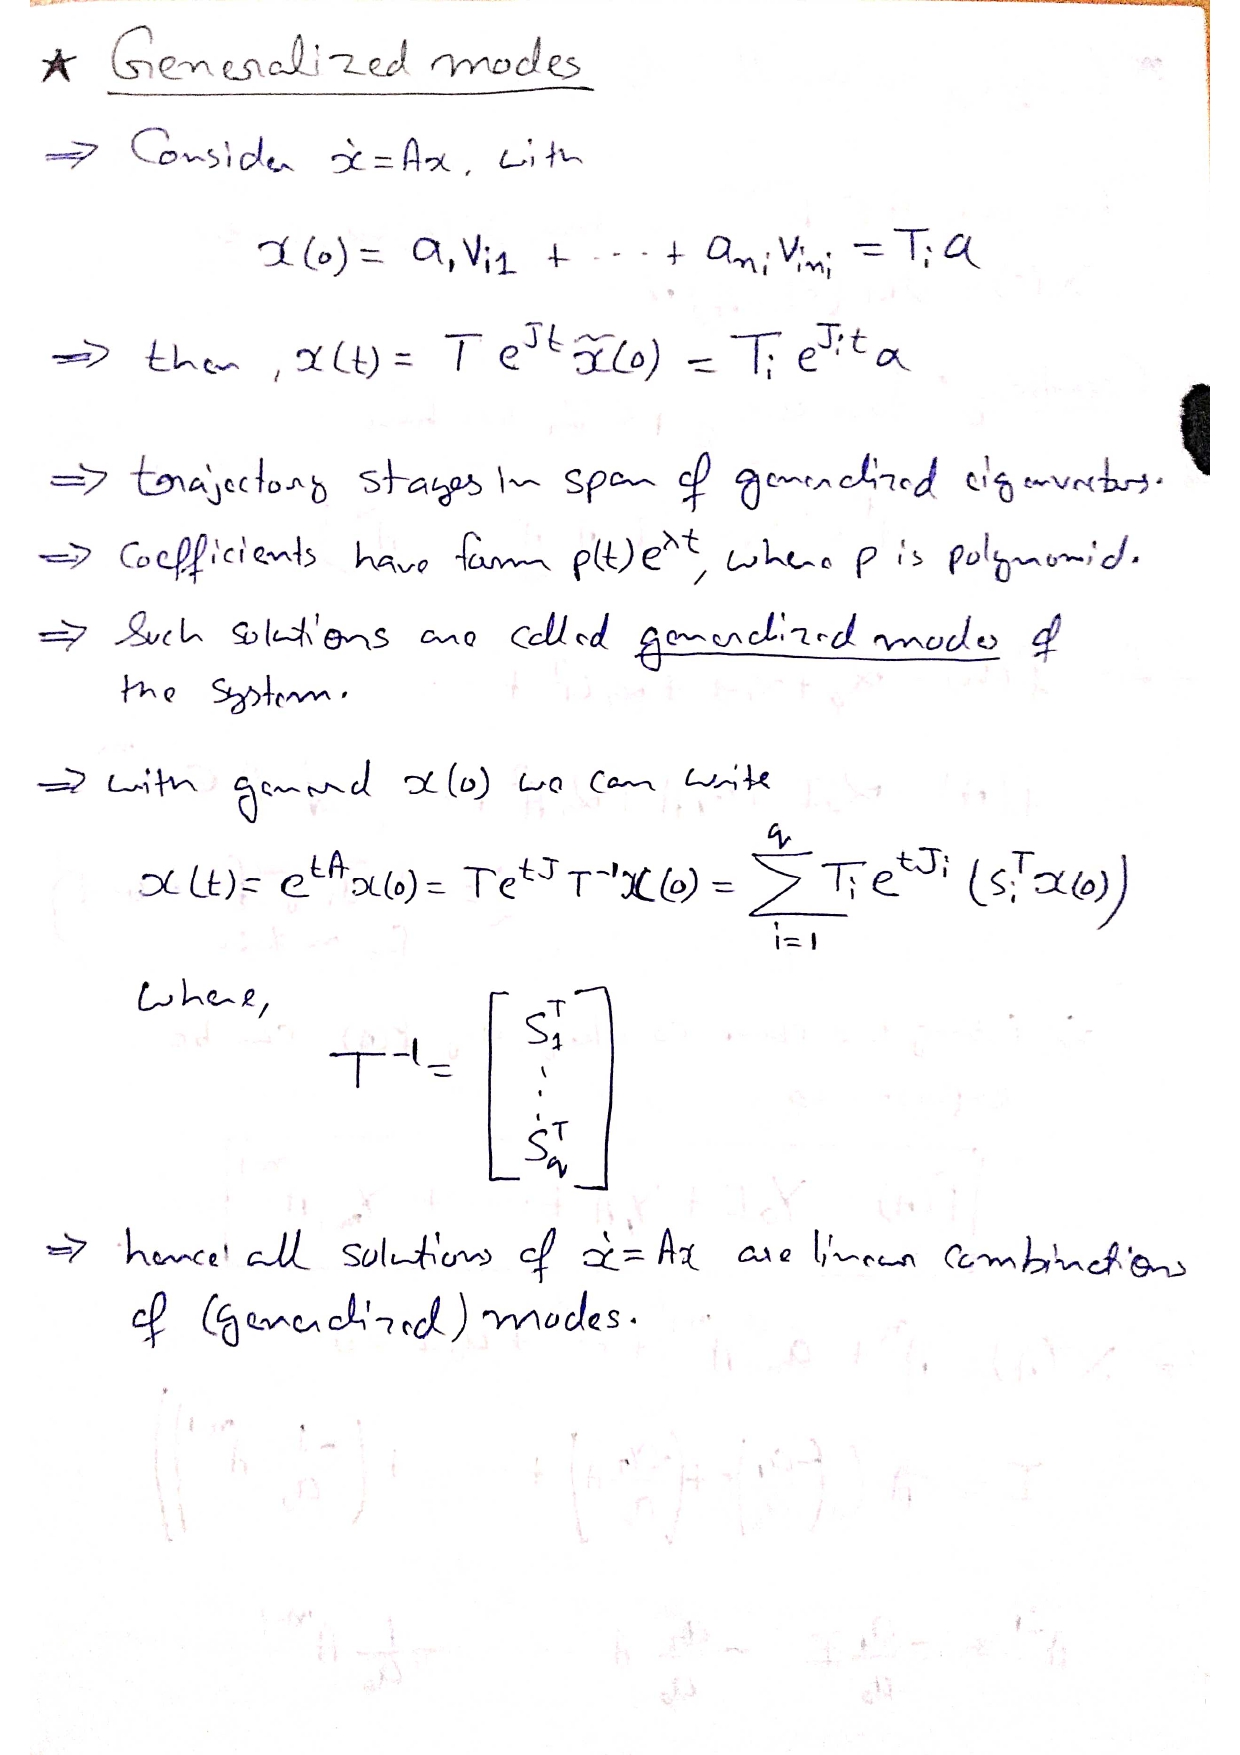 ★ Generalized modes
⇒ Consider ẋ = Ax, with
x(0) = a₁v_{i1} + ---- + a_{n_i} v_{in_i} = T_i a
⇒ then, x(t) = T e^{Jt} x̃(0) = T_i e^{J_i t} a
⇒ trajectory stayes in span of generalized eigenvectors.
⇒ Coefficients have form p(t)e^{λt}, where p is polynomial.
⇒ Such solutions are called generalized modes of
the system.
⇒ with general x(0) we can write
x(t) = e^{tA} x(0) = T e^{tJ} T^{-1} x(0) = \sum_{i=1}^{q} T_i e^{tJ_i} (S_i^T x(0))
where,
T^{-1} = [ S_1^T ⋮ S_q^T ]
⇒ hence! all solutions of ẋ = Ax are linear combinations
of (generalized) modes.